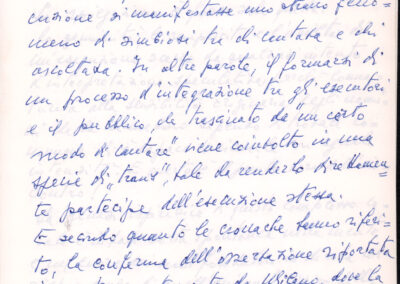 cuzione si manifestasse uno strano feno-
meno di simbiosi tra chi cantava e chi
ascoltava. In altre parole, il formarsi di
un processo d'integrazione tra gli esecutori
e il pubblico, che trascinato da "un certo
modo di cantare" viene coinvolto in una
specie di "trans", tale da renderlo direttamen-
te partecipe dell'esecuzione stessa.
E secondo quanto le cronache hanno riferi-
to, la conferma dell'osservazione riportata
da Milano, dove la